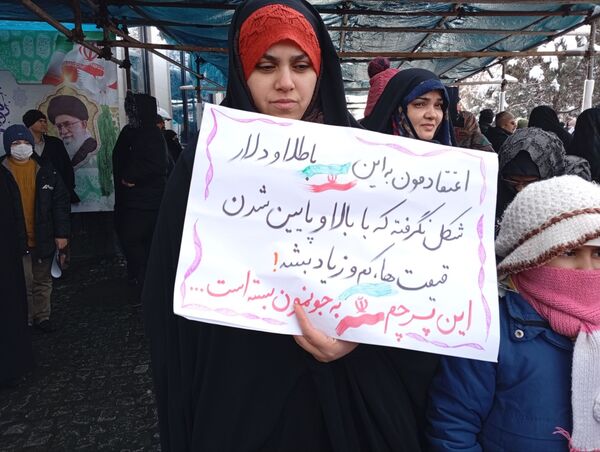 اعتقادمون به این با طلا و دلار
شکل نگرفته که با بالا و پایین شدن
قیمت ها، کم و زیاد بشه!
این پرچم به جونمون بسته است...